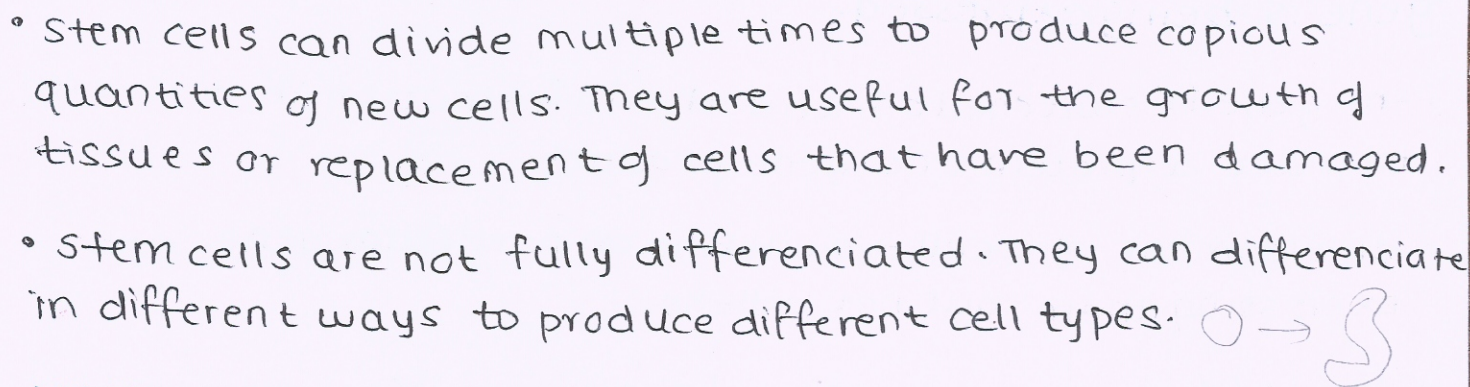 • Stem cells can divide multiple times to produce copious
quantities of new cells. They are useful for the growth of
tissues or replacement of cells that have been damaged.
• Stem cells are not fully differenciated. They can differenciate
in different ways to produce different cell types.